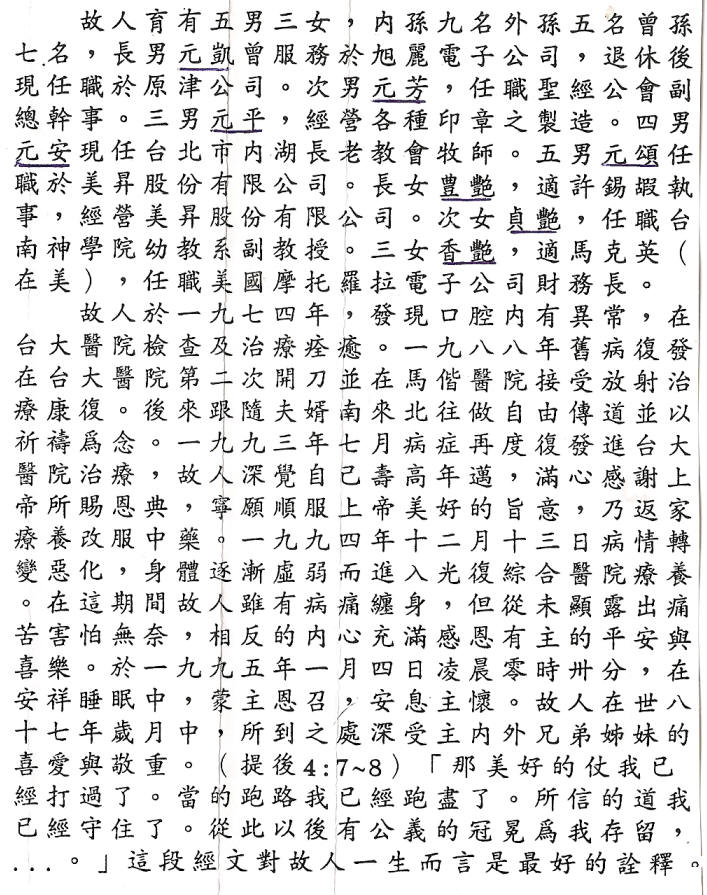 故人育有五男三女，內孫九名外孫五名曾孫
七名，長男元凱曾服務於旭麗電子公司，退休後
現任職於原津公司。次男元芳，任職聖經公會副
總幹事。三男元平，經營各種印章之製造。四男
元安現任台北市內湖長老教會牧師。五男元頌任
職於美昇股份有限公司。長女豊艷，適許錫嘏執
事，經營美昇股份有限公司。次女貞艷，任職台
南神學院幼教系副教授。三女香艷，適馬克英（
在美），任職美國摩托羅拉電子公司財務長。
故人於一九七四年，發現口腔內有異常，在
台大醫院檢查及治療痊癒。一九八八年舊病復發
在台大醫院第二次開刀並在馬偕醫院接受放射治
療康復。後來跟隨夫婿南來北往做自由傳道並以
祈禱爲念。一九九三年七月病症再度復發進台大
醫院治療，故人深覺自己壽高年邁，滿心感謝上
帝所賜恩典，寧願順服上帝美好的旨意，乃返家
療養改服中藥。一九九四年十二月十三日病情轉
變惡化，身體逐漸虛弱而進入光復綜合醫院療養
。在這期間故人雖有病痛纏身，但從未顯露出痛
苦害怕無奈，相反的內心充滿感恩有主的平安與
喜樂。於一九九五年一月四日凌晨零時卅分，在
安祥睡眠中，蒙主恩召，安息主懷。故人在世八
十七年歲月中，所到之處深受主內外兄弟姊妹的
喜愛與敬重。（提後4:7~8）「那美好的仗我已
經打過了。當的跑路我已經跑盡了。所信的道我
已經守住了。從此以後有公義的冠冕爲我存留，
...。」這段經文對故人一生而言是最好的詮釋。